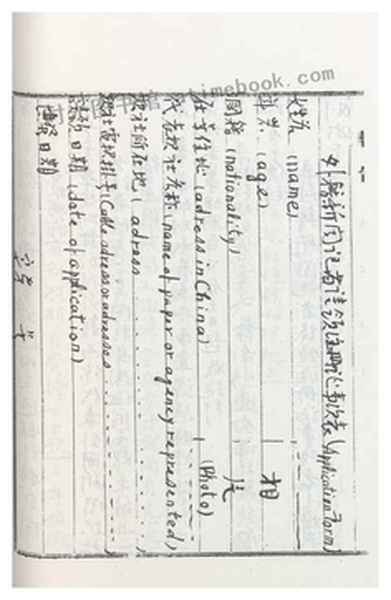 外籍新闻记者请领注册证事项表 (Application Form)
姓名 (name)
年岁 (age)
国籍 (nationality)
在华住址 (adress in China)
代表报社名称 (name of paper or agency represented)
报社所在地 (adress
报社电报挂号 (Cable adress or adresses
请领日期 (date of application)
填领日期
相
片
(Photo)
timebook.com